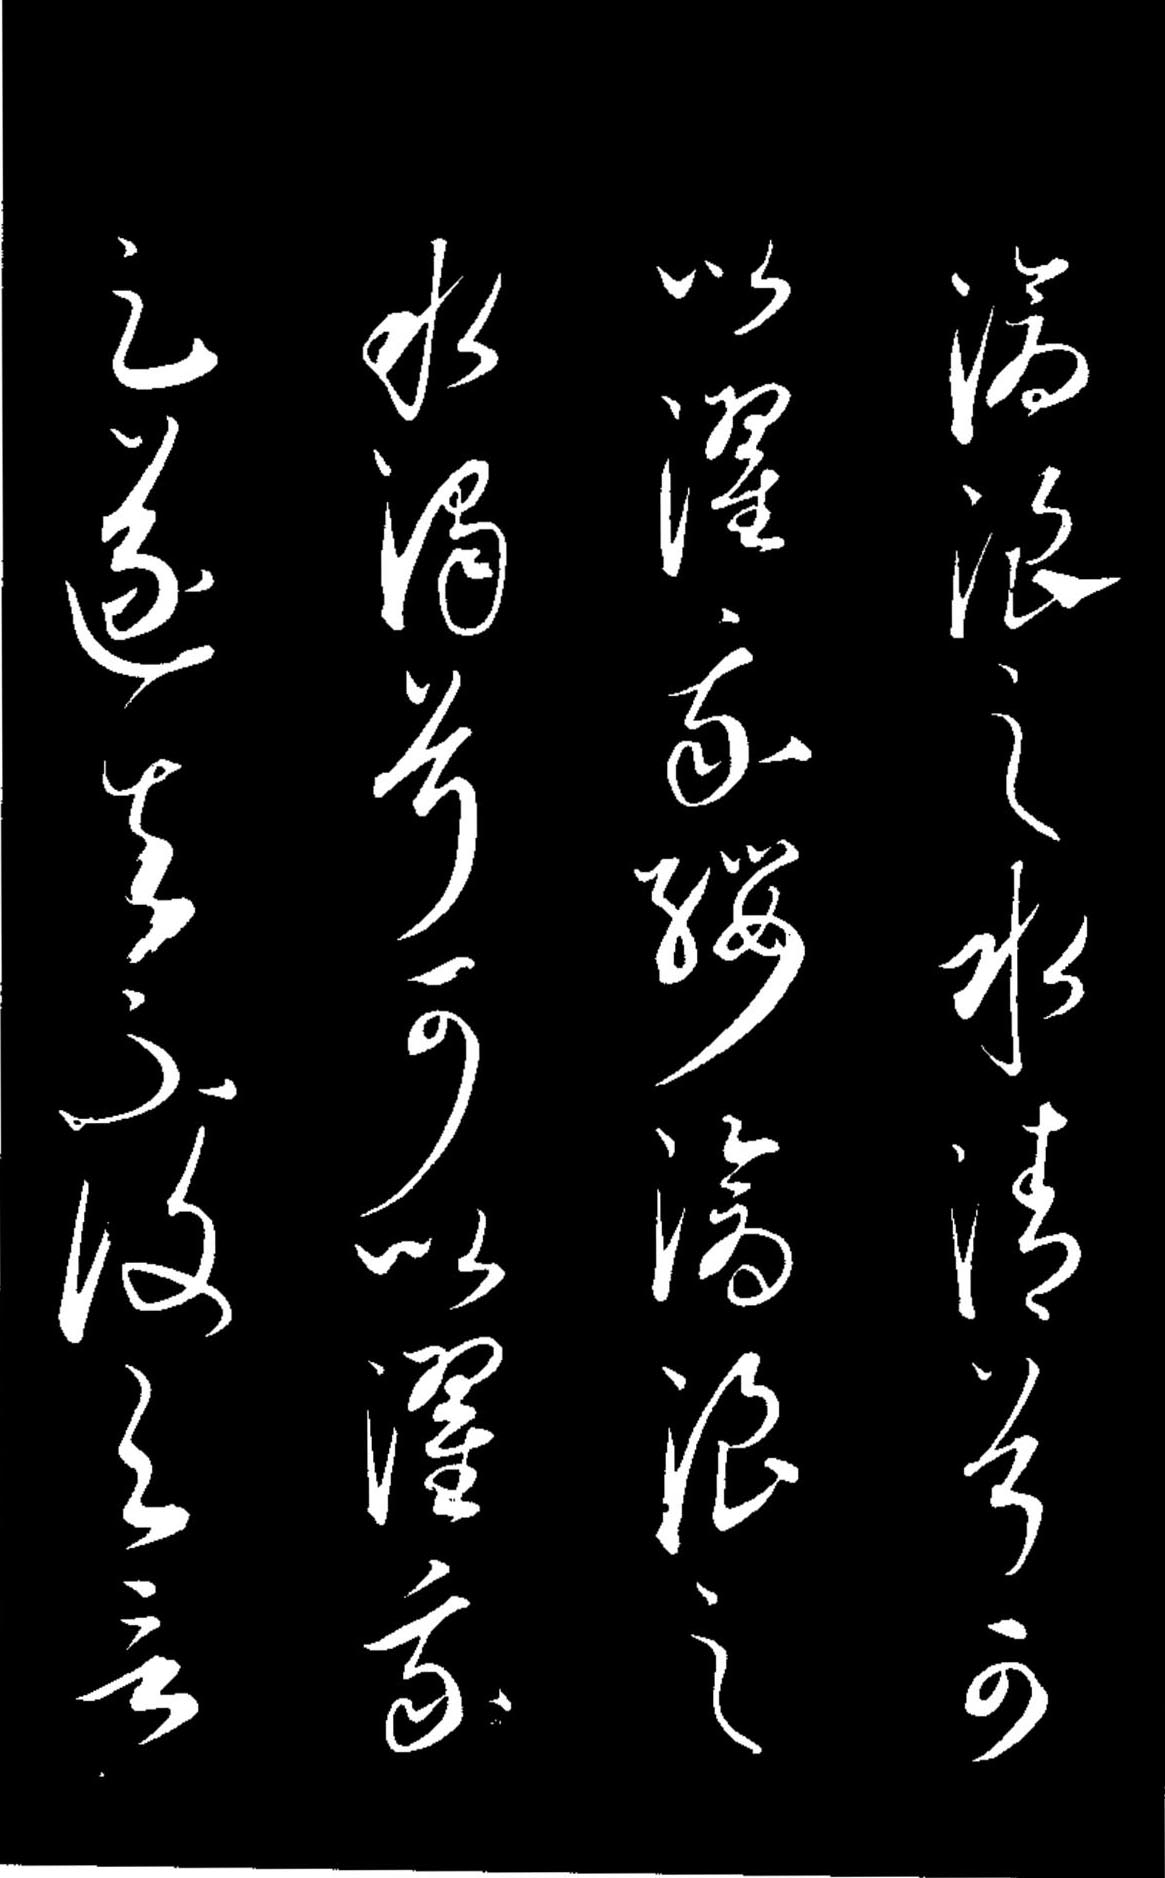 滄浪之水清兮可
以濯我纓滄浪之
水濁兮可以濯我
足遂去不復與言